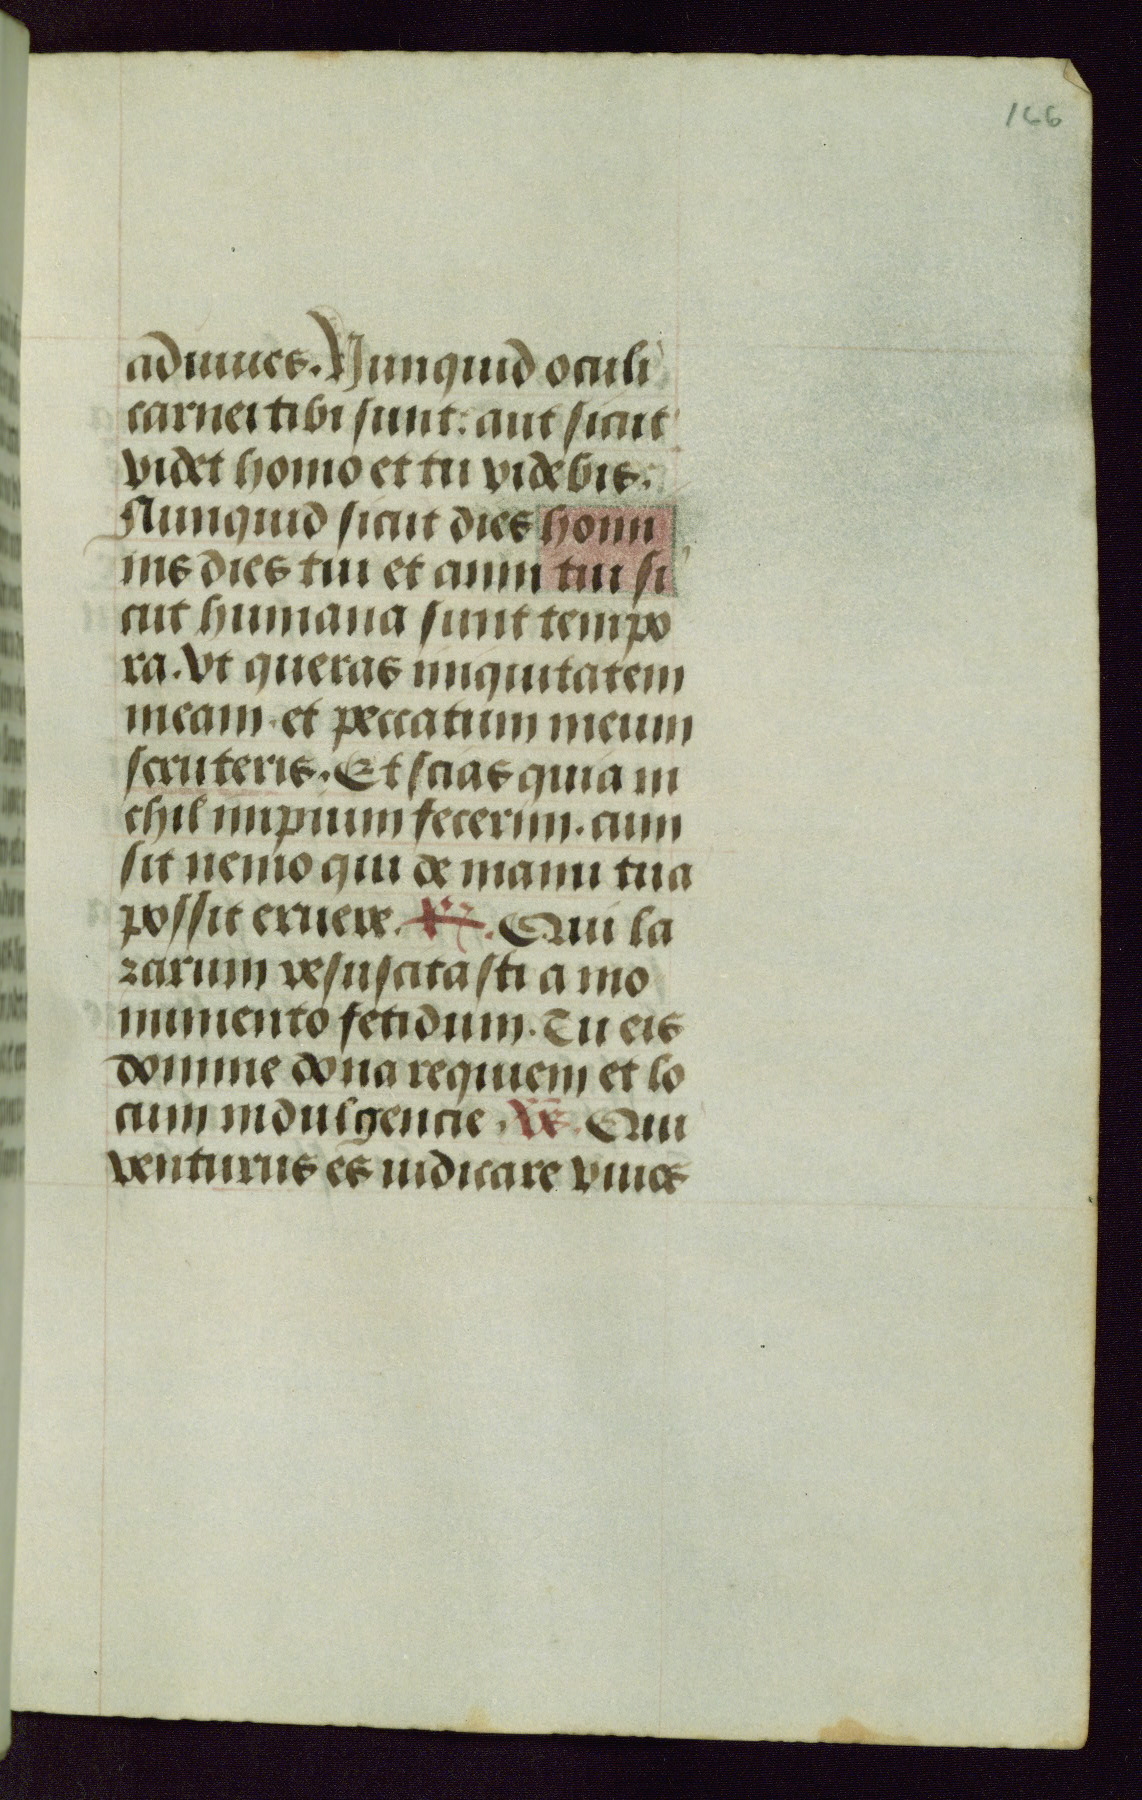 166
adiuues. Nunquid oculi
carnei tibi sunt: aut sicut
videt homo et tu videbis.
Nunquid sicut dies homi
nis dies tui et anni tui si
cut humana sunt tempo
ra. Vt queras iniquitatem
meam. et peccatum meum
scruteris. Et scias quia ni
chil impium fecerim. cum
sit nemo qui de manu tua
possit eruere. ℟. Qui la
zarum resuscitasti a mo
numento fetidum. Tu eis
domine dona requiem et lo
cum indulgencie. ℣. Qui
venturus es iudicare viuos